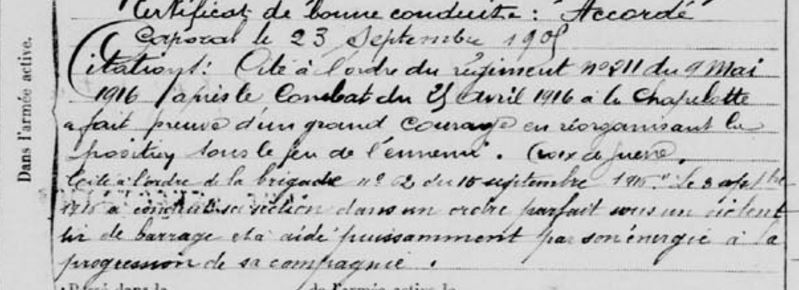 Certificat de bonne conduite : Accordé
Caporal le 23 Septembre 1905
Citations: Cité à l'ordre du régiment nº 211 du 9 Mai
1916 (après le Combat du 25 avril 1916 à la Chapelotte
a fait preuve d'un grand courage en réorganisant la
position sous le feu de l'ennemi. Croix de guerre.
Cité à l'ordre de la brigade nº 62 du 15 septembre 1916 " Le 3 septbre
1916 a conduit sa section dans un ordre parfait sous un violent
tir de barrage et a aidé puissamment par son énergie à la
progression de sa compagnie .
Dans l'armée active.
de l'armée active le